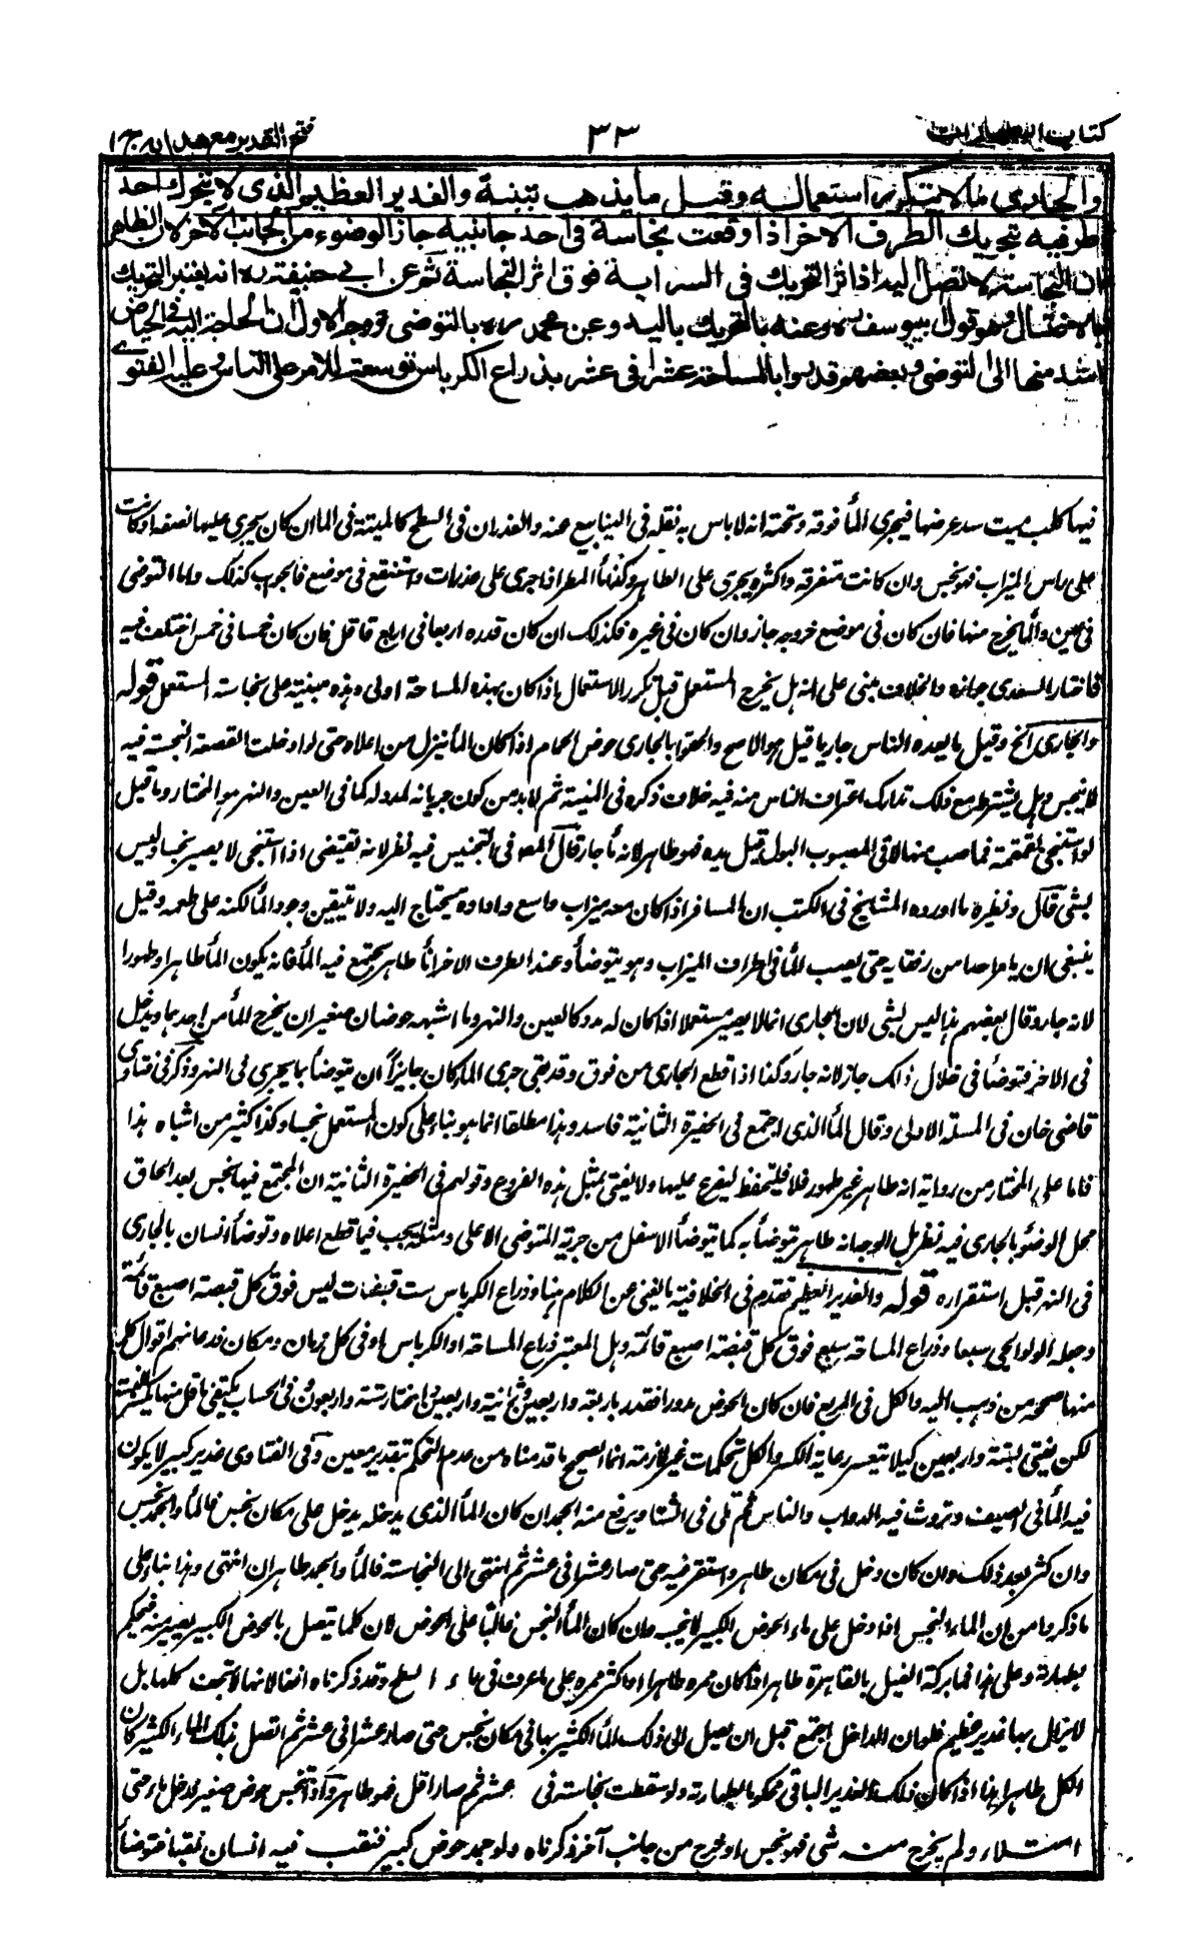 كتاب الطهارات
٣٣
فتح القدير مع هداية ج ١
والجارى ما لا يتكرر استعماله وقيل ما يذهب بتبنة والغدير العظيم الذى لا يتحرك احد
طرفيه بتحريك الطرف الآخر اذا وقعت نجاسة فى احد جانبيه جاز الوضوء من الجانب الآخر لان الظاهر
ان النجاسة لا تصل اليه اذ اثر التحريك فى السراية فوق اثر النجاسة ثم عن ابى حنيفة رہ انه يعتبر التحريك
بالاغتسال وهو قول ابى يوسف رہ وعنه بالتحريك باليد وعن محمد رہ بالتوضى ووجه الاول ان الحاجة اليه فى الحياض
اشد منها الى التوضى وبعضهم قدروا بالمساحة عشرا فى عشر بذراع الكرباس توسعة للامر على الناس وعليه الفتوى
فيها كلب ميت سد عرضها فيجرى الماء فوقه وتحته انه لا باس به نقله فى الينابيع عنه والعذرات فى السطح كالميتة فى الماء ان كان يجرى عليها نصفه او كانت
على راس الميزاب فهو نجس وان كانت متفرقة واكثره يجرى على الطاهر وكذا ماء المطر اذا جرى على عذرات واستنقع فى موضع فالجواب كذلك واما التوضى
فى عين والماء يخرج منها فان كان فى موضع خروجه جاز وان كان فى غيره فكذلك ان كان قدره اربعا فى اربع فاقل فان كان خمسا فى خمس اختلف فيه
فاختار السغدى جوازه والخلاف مبنى على انه هل يخرج المستعمل قبل تكرر الاستعمال اذا كان بهذه المساحة اولى وهذه مبنية على نجاسة المستعمل قوله
والجارى الخ وقيل ما يعده الناس جاريا قيل هو الاصح والحقوا بالجارى حوض الحمام اذا كان الماء ينزل من اعلاه حتى لو ادخلت القصعة النجسة فيه
لا ينجس وهل يشترط مع ذلك تدارك اغتراف الناس منه فيه خلاف ذكره فى المنية ثم لا بد من كون جريانه لمدد له كما فى العين والنهر هو المختار وما قيل
لو استنجى بقمقمة فما صب منها لاقى المصبوب البول قبل يده فهو طاهر لانه ماء جار قال المص فى التجنيس فيه نظر لانه تقتضى اذا استنجى لا يصير نجسا وليس
بشئ قال ونظيره ما اورده المشايخ فى الكتب ان المسافر اذا كان معه ميزاب واسع واداوة يحتاج اليه ولا يتيقن وجود الماء لكنه على طمعه وقيل
ينبغى ان يامر احدا من رفقايه حتى يصب الماء فى اطراف الميزاب وهو يتوضأ وعند الطرف الاخر اناء طاهر يجتمع فيه الماء فانه يكون الماء طاهرا وطهورا
لانه جار وقال بعضهم هذا ليس بشئ لان الجارى انما لا يصير مستعملا اذا كان له مدد كالعين والنهر وما اشبهه حوضان صغيران يخرج الماء من احدهما ويدخل
فى الاخر فتوضأ فى خلال ذلك جاز لانه جار وكذا اذا قطع الجارى من فوق وقد بقى جرى الماء كان جايزا ان يتوضأ بما يجرى فى النهر وذكر فى فتاوى
قاضى خان فى المسئلة الاولى وقال الماء الذى اجتمع فى الحفيرة الثانية فاسد وهذا مطلقا انما هو بناء على كون المستعمل نجسا وكذا كثير من اشباه هذا
فاما على المختار من رواية انه طاهر غير طهور فلا فليتحفظ ليفرع عليها ولا يفتى بمثل هذه الفروع وقولهم فى الحفيرة الثانية ان المجتمع فيها نجس بعد الحاق
محل الوضوء بالجارى فيه نظر بل الوجه انه طاهر يتوضأ به كما يتوضأ الاسفل من جرية المتوضى الاعلى ومثله يجب فيما قطع اعلاه وتوضأ انسان بالجارى
فى النهر قبل استقراره قوله والغدير العظيم تقدم فى الخلافية ما يغنى عن الكلام هنا وذراع الكرباس ست قبضات ليس فوق كل قبضة اصبع قائمة
وجعله الولوالجى سبعا وذراع المساحة سبع فوق كل قبضة اصبع قائمة وهل المعتبر ذراع المساحة او الكرباس او فى كل زمان ومكان ذرعانهم اقوال كل
منها صححه من ذهب اليه والكل فى المربع فان كان الحوض مدورا فقدر باربعة واربعين وثمانية واربعين والمختار ستة واربعون فى الحساب يكتفى باقل منها بكسر النسبة
لكن يفتى بستة واربعين كيلا يتعسر رعاية الكسر والكل تحكمات غير لازمة انما الصحيح ما قدمناه من عدم التحكم بتقدير معين وفى الفتاوى غدير كبير لا يكون
فيه الماء فى الصيف وتروث فيه الدواب والناس ثم يملى فى الشتاء ويرفع منه الجمد ان كان الماء الذى يدخله يدخل على مكان نجس فالماء والجمد نجس
وان كثر بعد ذلك وان كان دخل فى مكان طاهر واستقر فيه حتى صار عشرا فى عشر ثم انتهى الى النجاسة فالماء والجمد طاهران انتهى وهذا بناء على
ما ذكروا من ان الماء النجس اذا دخل على ماء الحوض الكبير لا ينجسه وان كان الماء النجس غالبا على الحوض لان كلما يتصل بالحوض الكبير يصير منه فيحكم
بطهارته وعلى هذا فماء بركة الفيل بالقاهرة طاهر اذا كان ممره طاهرا او اكثر ممره على ما عرف فى ماء السطح وقد ذكرناه انفا لانها لا تجف كلها بل
لا يزال بها غدير عظيم فلو ان الداخل اجتمع قبل ان يصل الى ذلك الماء الكثير بها فى مكان نجس حتى صار عشرا فى عشر ثم اتصل بذلك الماء الكثير كان
الكل طاهرا هذا اذا كان ذلك الغدير الباقى محكوما بطهارته ولو سقطت نجاسة فى عشر ثم صار اقل فهو طاهر واذا تنجس حوض صغير فدخل ماء حتى
امتلاء ولم يخرج منه شئ فهو نجس او خرج من جانب آخر ذكرناه ولو جمد حوض كبير فنقب فيه انسان نقبا فتوضأ